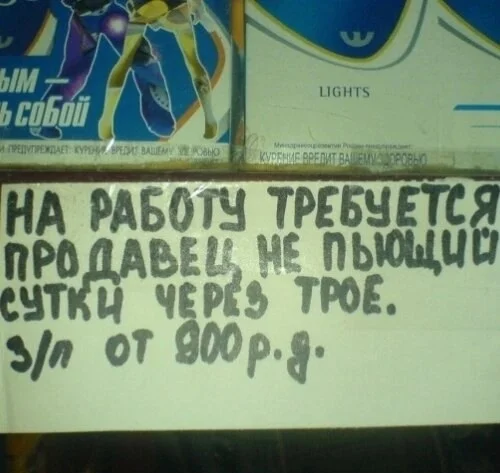 ЫМ —
Ь СОБОЙ
LIGHTS
ПРЕДУПРЕЖДАЕТ: КУРЕНИЕ ВРЕДИТ ВАШЕМУ ЗДОРОВЬЮ
Минздравсоцразвития России предупреждает:
КУРЕНИЕ ВРЕДИТ ВАШЕМУ ЗДОРОВЬЮ
НА РАБОТУ ТРЕБУЕТСЯ
ПРОДАВЕЦ НЕ ПЬЮЩИЙ
СУТКИ ЧЕРЕЗ ТРОЕ.
З/П ОТ 900 р. д.